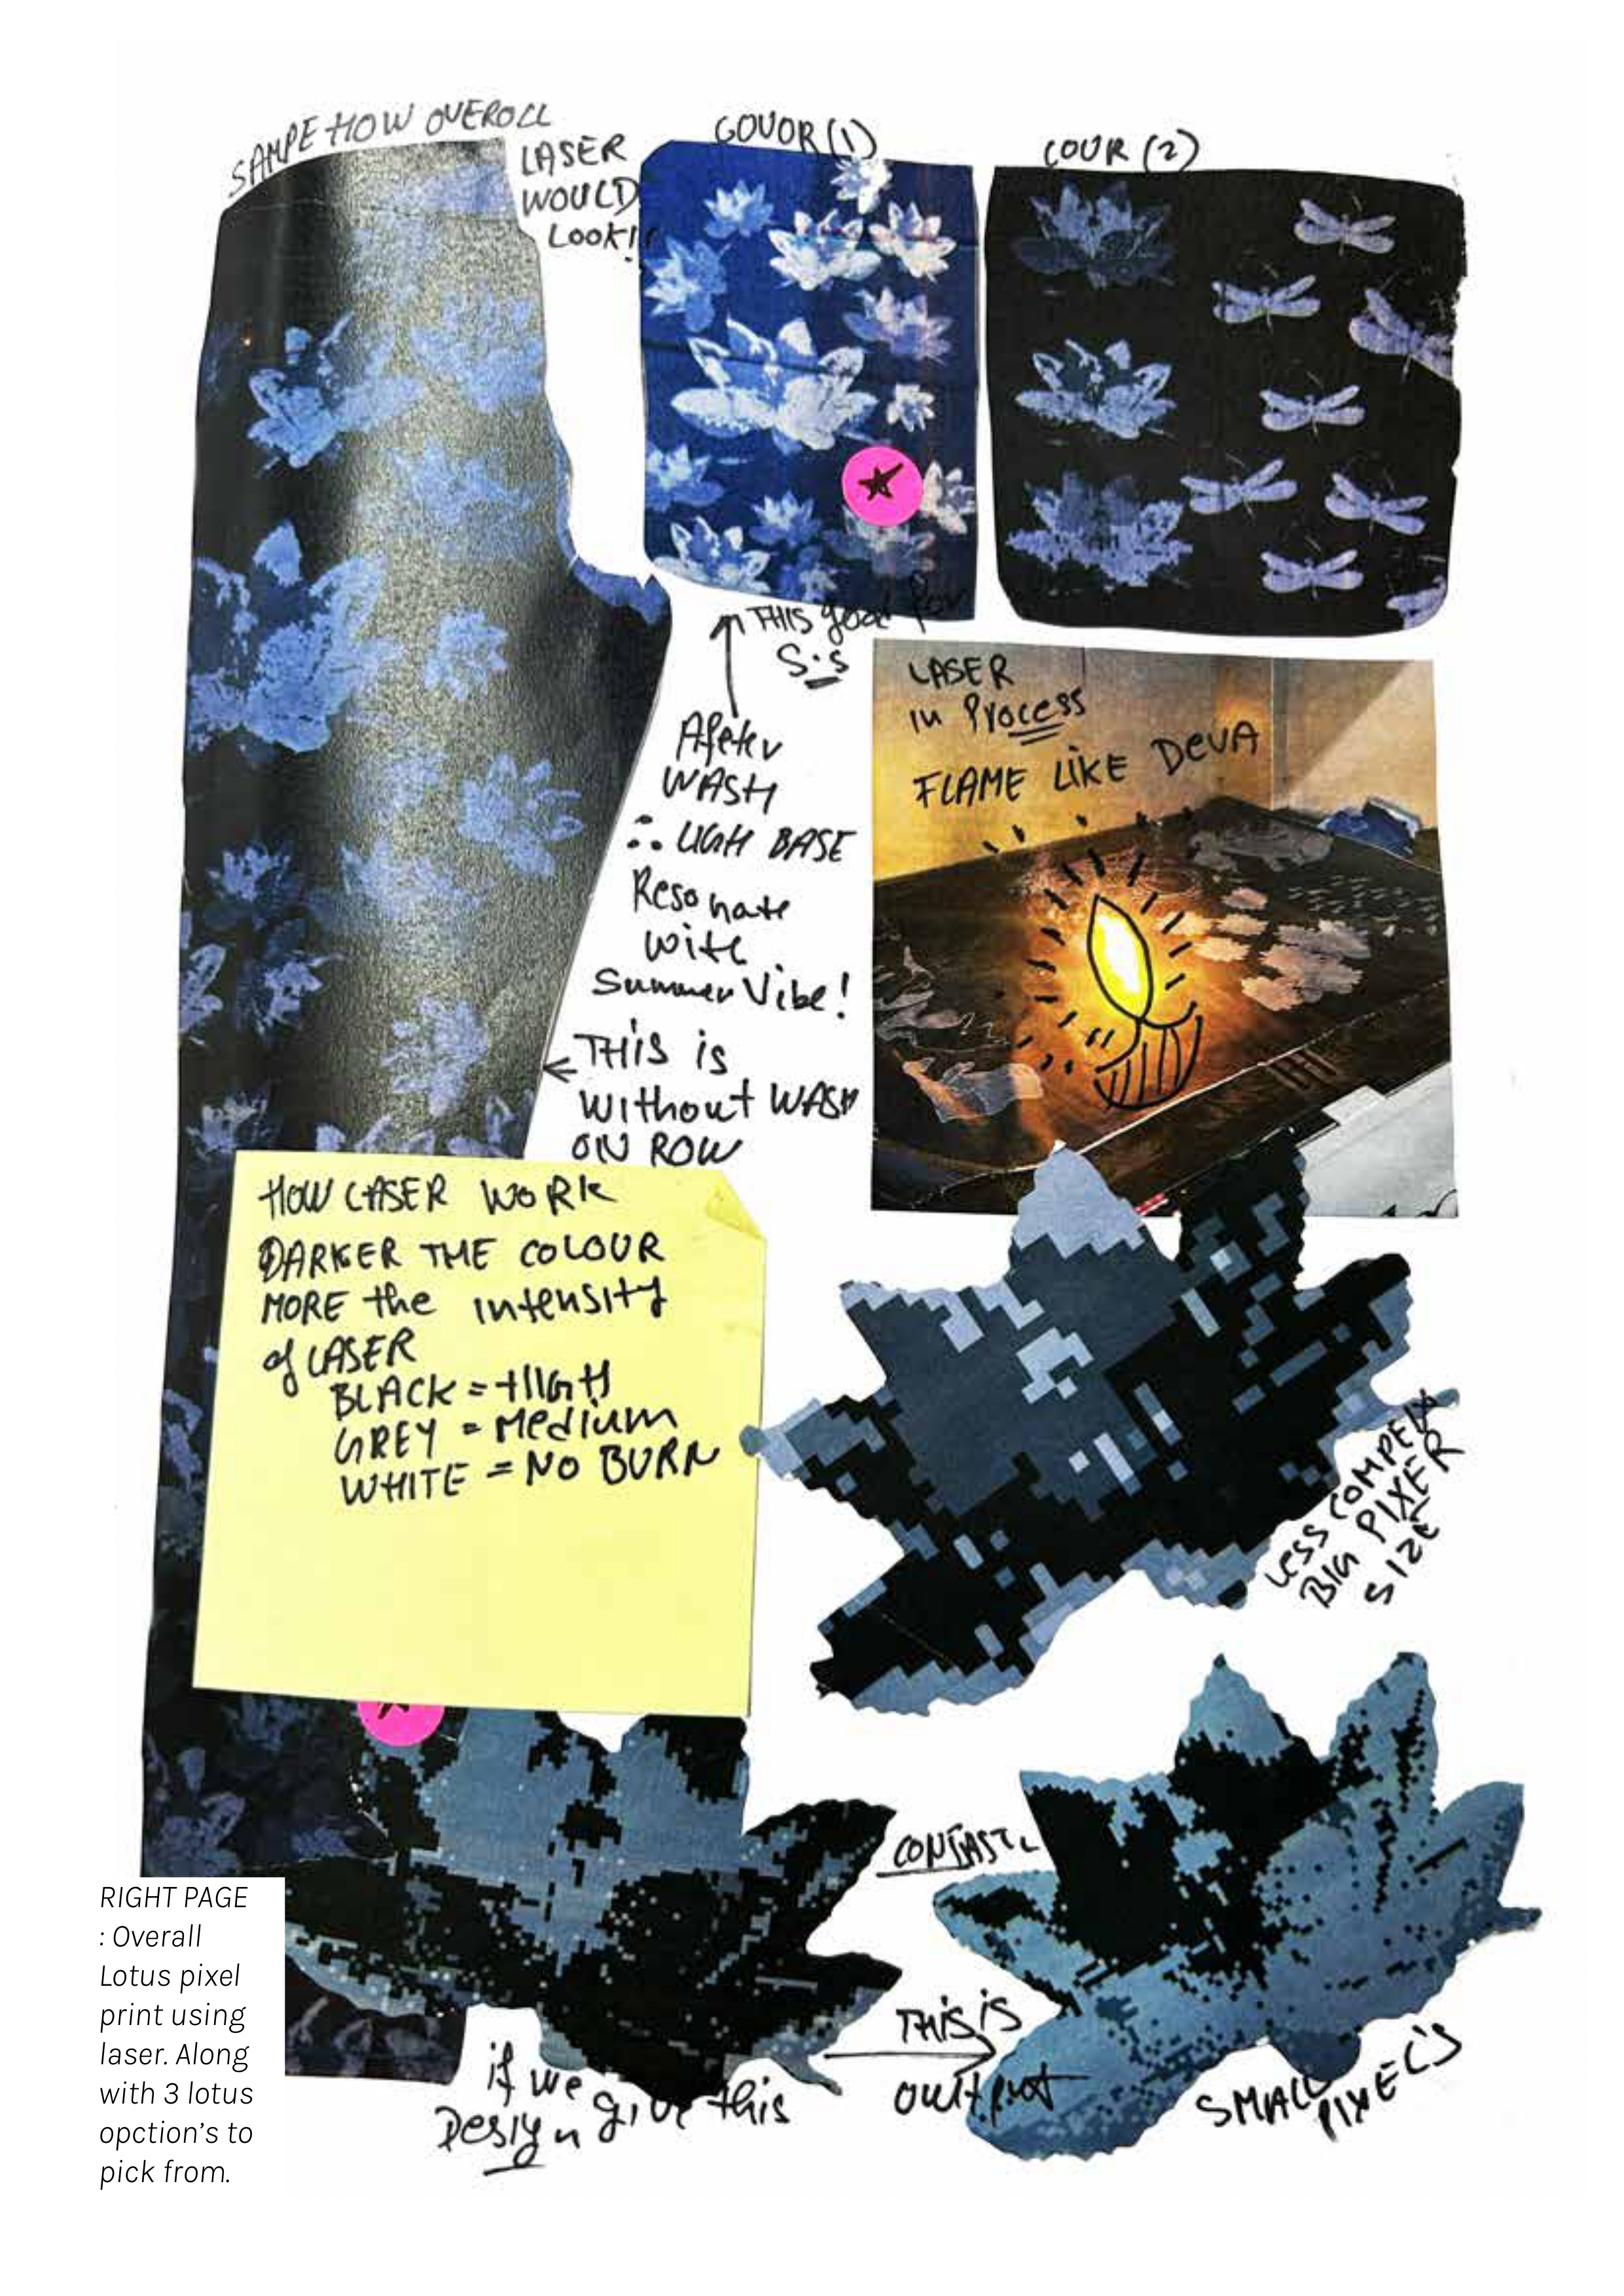 SAMPE HOW OVEROLL
LASER
WOULD
LOOK!!
COUOR (1)
COUR (2)
THIS good For
S.S
Afetev
WASH
∴ LIGH BASE
Resonate
with
Summer Vibe!
THIS is
without WASH
ON ROW
LASER
in Process
FLAME LIKE DEVA
HOW LASER WORK
DARKER THE COLOUR
MORE the intensity
of LASER
BLACK = HIGH
GREY = Medium
WHITE = NO BURN
LESS COMPELX
BIG PIXER
SIZE
CONTAST
if we give this
Design
THIS is
OUTPUT
SMALL
PIXEL'S
RIGHT PAGE
: Overall
Lotus pixel
print using
laser. Along
with 3 lotus
opction's to
pick from.